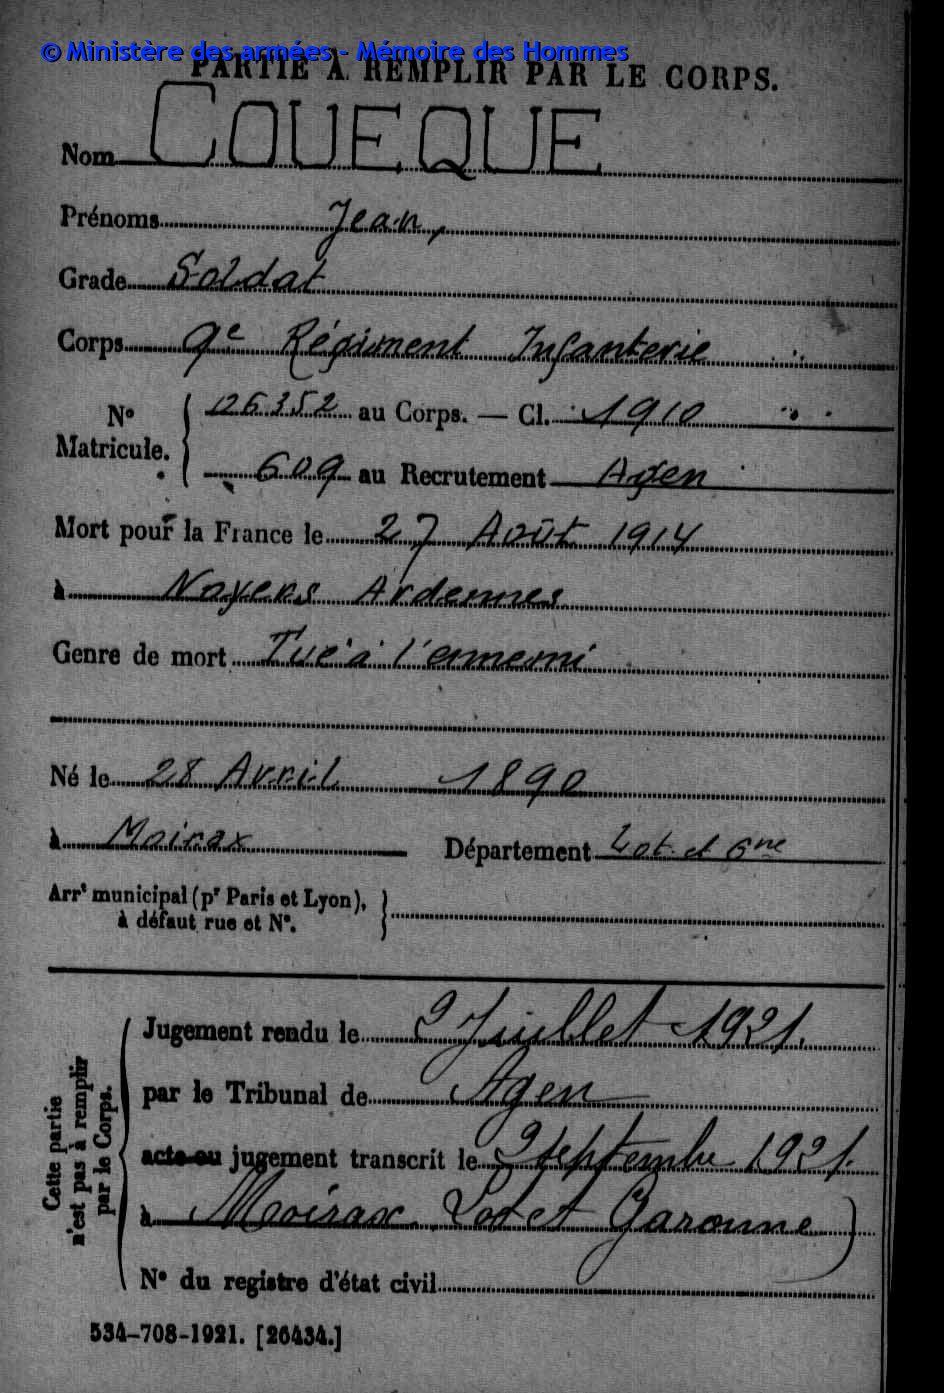 © Ministère des armées - Mémoire des Hommes
PARTIE À REMPLIR PAR LE CORPS.
Nom COUEQUE
Prénoms Jean,
Grade Soldat
Corps 9e Régiment Infanterie
N° Matricule. { 026352 au Corps. — Cl. 1910
609 au Recrutement Agen
Mort pour la France le 27 Août 1914
à Noyers Ardennes
Genre de mort Tué à l'ennemi
Né le 28 Avril 1890
à Moirax Département Lot et Gne
Arrt municipal (pr Paris et Lyon),
à défaut rue et N°.
Cette partie n'est pas à remplir par le Corps.
Jugement rendu le 2 Juillet 1921.
par le Tribunal de Agen
acte ou jugement transcrit le 2 Septembre 1921.
à Moirax Lot et Garonne)
N° du registre d'état civil
534-708-1921. [26434.]